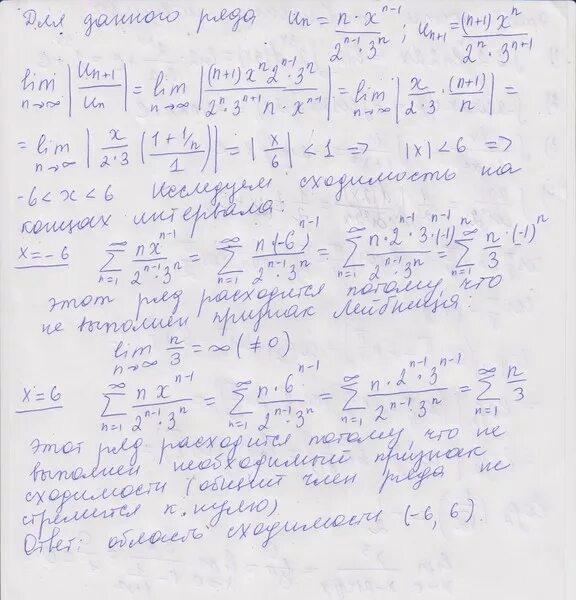 Для данного ряда Uₙ = n·xⁿ⁻¹/(2ⁿ⁻¹·3ⁿ); Uₙ₊₁ = (n+1)xⁿ/(2ⁿ·3ⁿ⁺¹)
lim n→∞ |Uₙ₊₁/Uₙ| = lim n→∞ |(n+1)xⁿ2ⁿ⁻¹·3ⁿ/(2ⁿ·3ⁿ⁺¹n·xⁿ⁻¹)| = lim n→∞ |x/(2·3)·(n+1)/n| =
= lim n→∞ |x/(2·3) ((1+1/n)/1)| = |x/6| < 1 => |x| < 6 =>
-6 < x < 6 Исследуем сходимость на
концах интервала:
x = -6 ∑ n=1 ∞ nxⁿ⁻¹/(2ⁿ⁻¹·3ⁿ) = ∑ n=1 ∞ n(-6)ⁿ⁻¹/(2ⁿ⁻¹·3ⁿ) = ∑ n=1 ∞ n·2ⁿ⁻¹·3ⁿ⁻¹·(-1)ⁿ⁻¹/(2ⁿ⁻¹·3ⁿ) = ∑ n=1 ∞ n·(-1)ⁿ/3
Этот ряд расходится потому, что
не выполнен признак Лейбница:
lim n→∞ n/3 = ∞ (≠0)
x = 6 ∑ n=1 ∞ nxⁿ⁻¹/(2ⁿ⁻¹·3ⁿ) = ∑ n=1 ∞ n·6ⁿ⁻¹/(2ⁿ⁻¹·3ⁿ) = ∑ n=1 ∞ n·2ⁿ⁻¹·3ⁿ⁻¹/(2ⁿ⁻¹·3ⁿ) = ∑ n=1 ∞ n/3
Этот ряд расходится потому, что не
выполнен необходимый признак
сходимости (общий член ряда не
стремится к нулю)
Ответ: область сходимости (-6, 6).